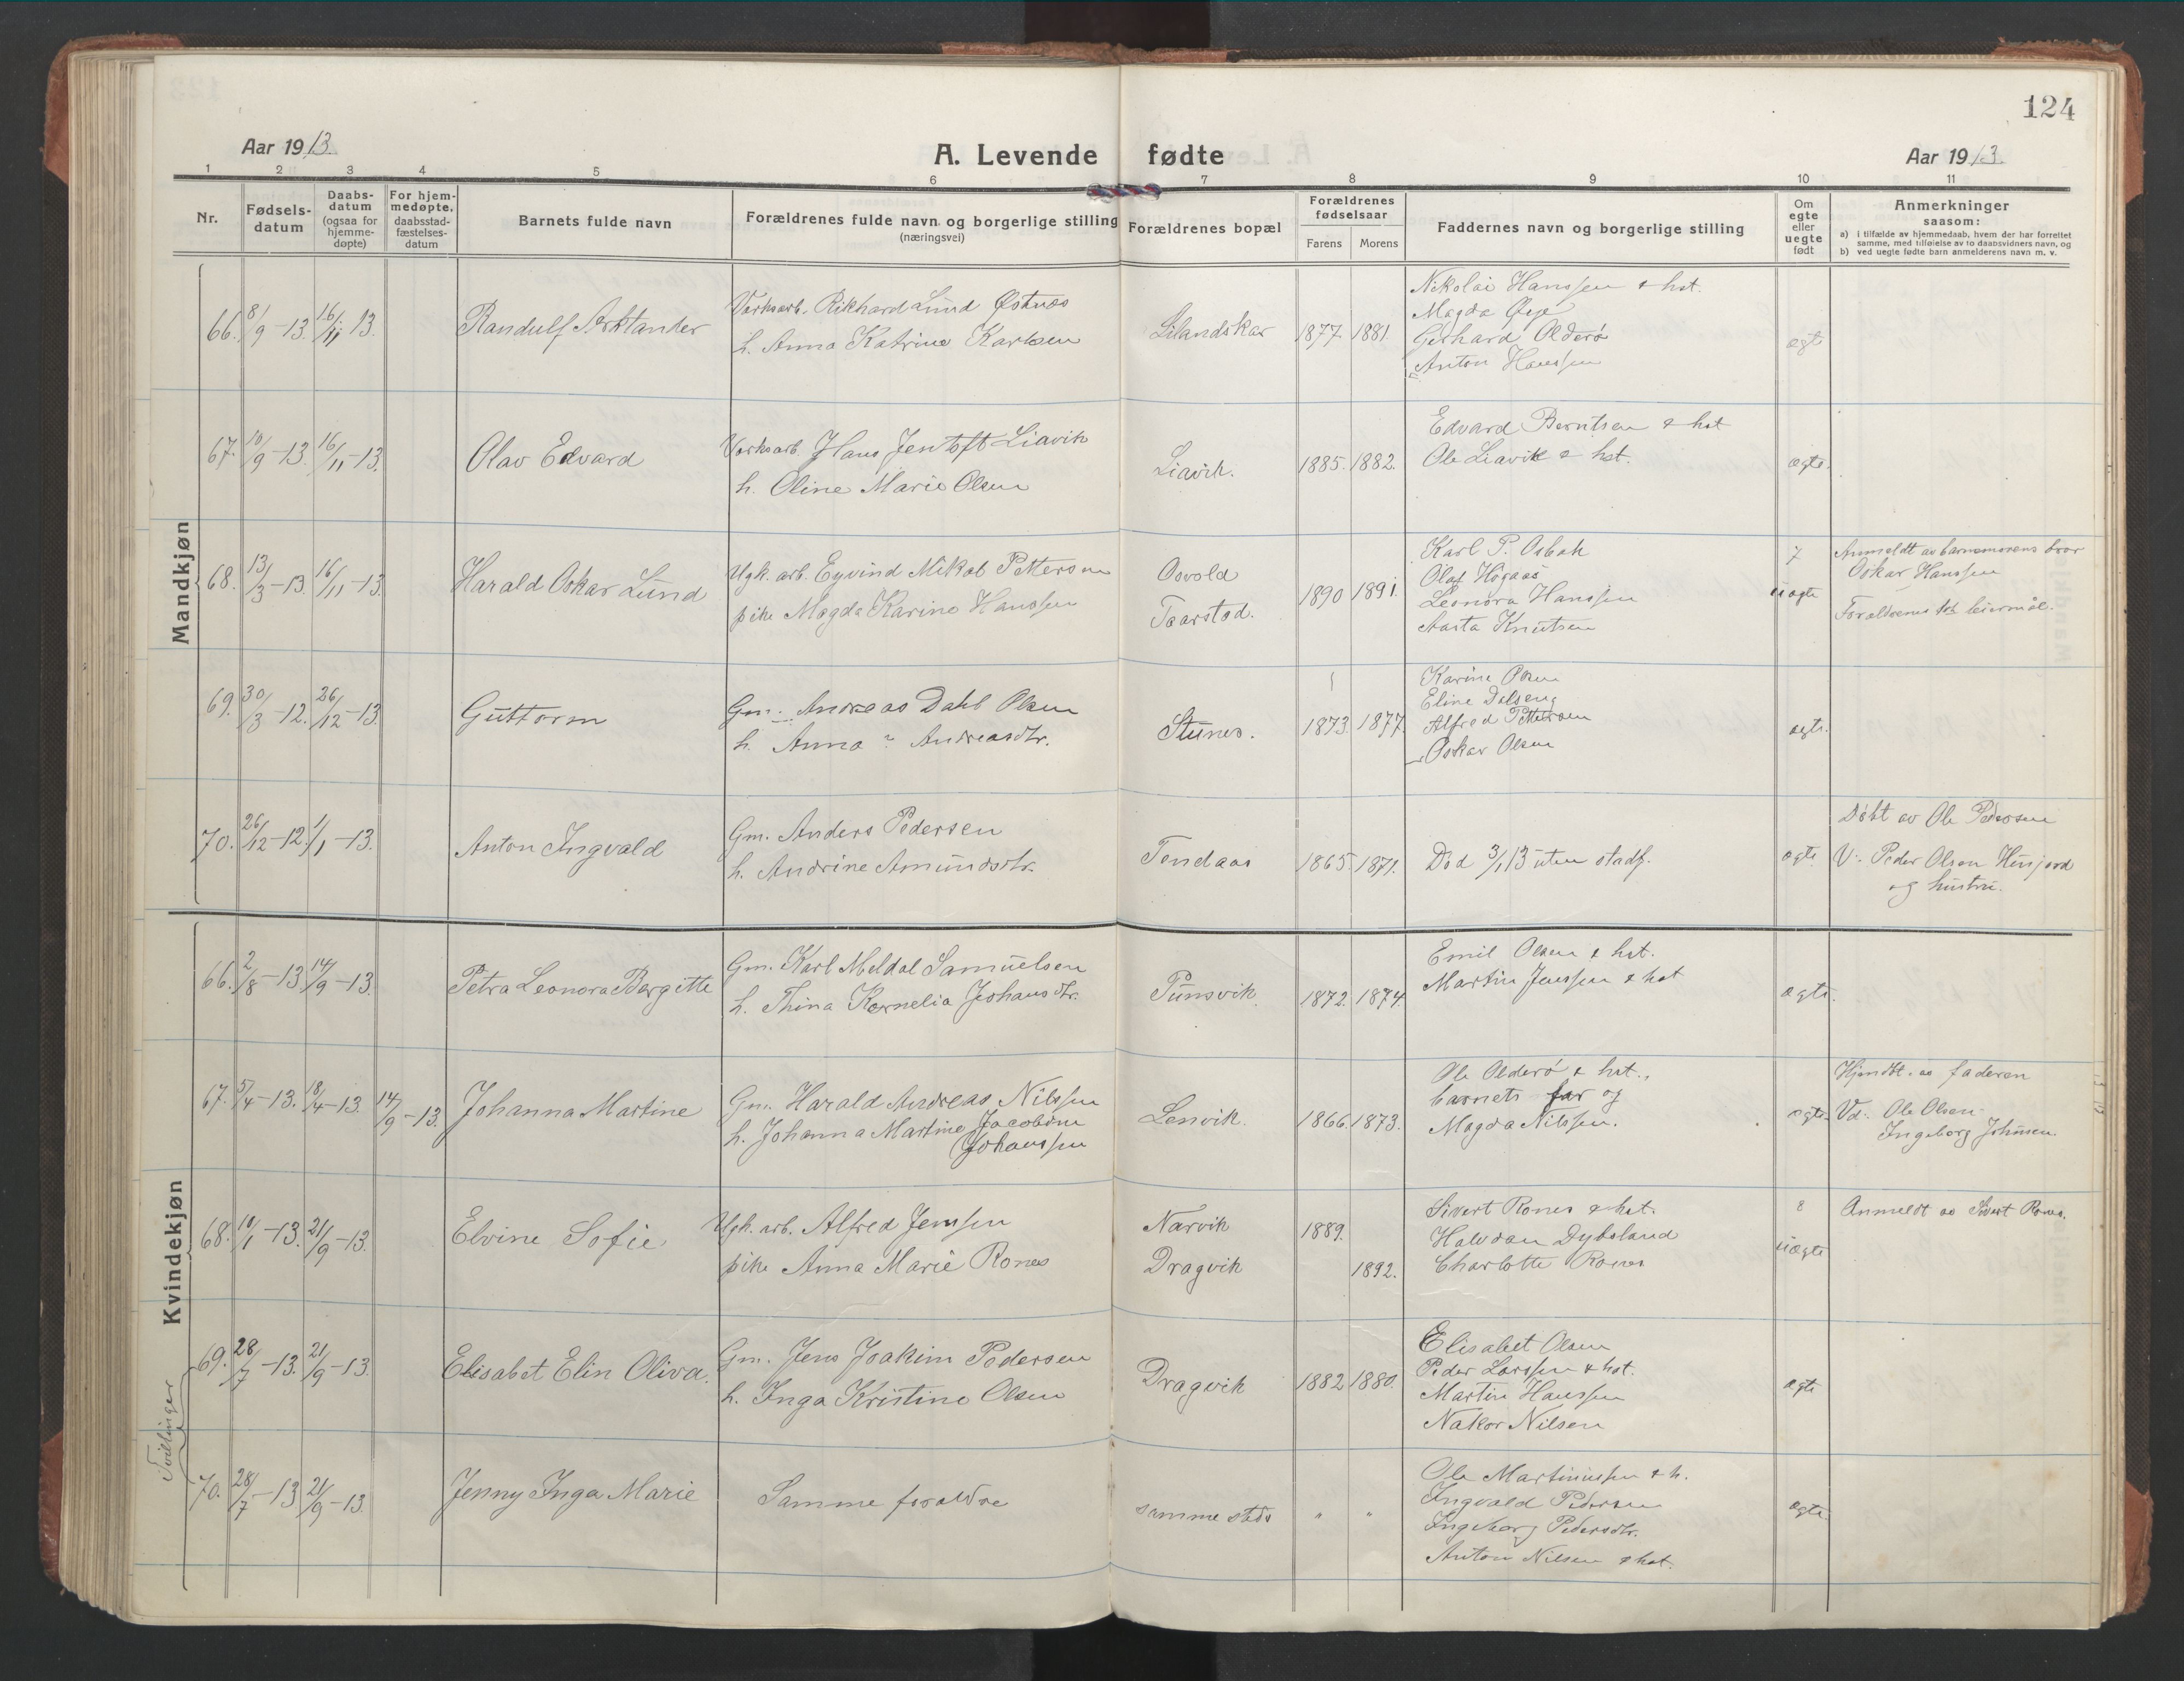 124
Aar 1913.
A. Levende fødte
Aar 1913.
1 2 3 4 5 6 7 8 9 10 11
Nr.
Fødsels-
datum
Daabs-
datum
(ogsaa for
hjemme-
døpte)
For hjem-
medøpte,
daabsstad-
fæstelses-
datum
Barnets fulde navn
Forældrenes fulde navn og borgerlige stilling
(næringsvei)
Forældrenes bopæl
Forældrenes
fødselsaar
Farens Morens
Faddernes navn og borgerlige stilling
Om
egte
eller
uegte
født
Anmerkninger
saasom:
a) i tilfælde av hjemmedaab, hvem der har forrettet
samme, med tilføielse av to daabsvidners navn, og
b) ved uegte fødte barn anmelderens navn m. v.
Mandkjøn
66. 8/9-13. 16/11 13. Randulf Arktander
Verksarb. Rikhard Lund Østnes
h. Anna Katrine Karlsen
Lilandskar 1877 1881.
Nikolai Hanssen & hst.
Magda Øye
Gerhard Olderø
Anton Hanssen
egte
67. 10/9-13. 16/11-13. Olav Edvard
Verksarb. Hans Jentoft Liavik
h. Oline Marie Olsen
Liavik. 1885. 1882.
Edvard Berntsen & hst
Ole Liavik & hst.
egte.
68. 13/3-13. 16/11-13. Harald Oskar Lund
Ugh. arb. Eyvind Mikal Pettersen
pike Magda Karine Hanssen
Osvold
Taarstad.
1890 1891.
Karl P. Osbak
Olaf Høgaas
Leonora Hanssen
Aasta Knutsen
7
uegte
Anmeldt av barnemorens bror
Oskar Hanssen
Forældrenes 1ste leiermål.
69. 30/3-12. 26/12-13. Guttorm
Gm. Andreas Dahl Olsen
h. Anna ? Andreasdtr.
Stunes. 1873. 1877.
Karine Olsen
Eline Dalseng
Alfred Pettersen
Oskar Olsen
egte.
70. 26/12-12. 1/1-13. Anton Ingvald
Gm. Anders Pedersen
h. Andrine Amundsdtr.
Tendaas 1865. 1871.
Død 3/1 13 uten stadf.
egte
Døbt av Ole Pedersen
V: Peder Olsen Husjord
og hustru.
Kvindekjøn
66. 2/8-13. 14/9-13. Petra Leonora Bergitte
Gm. Karl Meldal Samuelsen
h. Thina Kornelia Johansdtr.
Punsvik. 1872. 1874.
Emil Olsen & hst.
Martin Jenssen & hst
egte.
67. 5/4-13. 18/4-13. 14/9-13. Johanna Martine
Gm. Harald Andreas Nilssen
h. Johanna Martine Jacobine
Johanssen
Lenvik. 1866. 1873.
Ole Olderø & hst.,
barnets far og
Magda Nilssen.
egte.
Hjemdøbt. av faderen
Vd: Ole Olsen
Ingeborg Johnsen.
68. 10/1-13. 21/9-13. Elvine Sofie
Ugh. arb. Alfred Jenssen
pike Anna Marie Rones
Narvik
Dragvik
1889.
1892.
Sivert Rones & hst.
Halvdan Dybsland
Charlotte Rones
8
uegte
Anmeldt av Sivert Rones.
Tvillinger
69. 28/7-13. 21/9-13. Elisabet Elin Oliva.
Gm. Jens Joakim Pedersen
h. Inga Kristine Olsen
Dragvik 1882 1880.
Elisabet Olsen
Peder Larssen & hst.
Martin Hanssen
Nakor Nilsen
egte
70. 28/7-13 21/9-13. Jenny Inga Marie
Samme foraldre
samme sted " "
Ole Martinussen & h.
Ingvald Pedersen
Ingeborg Pedersdtr.
Anton Nilsen & hst.
egte.